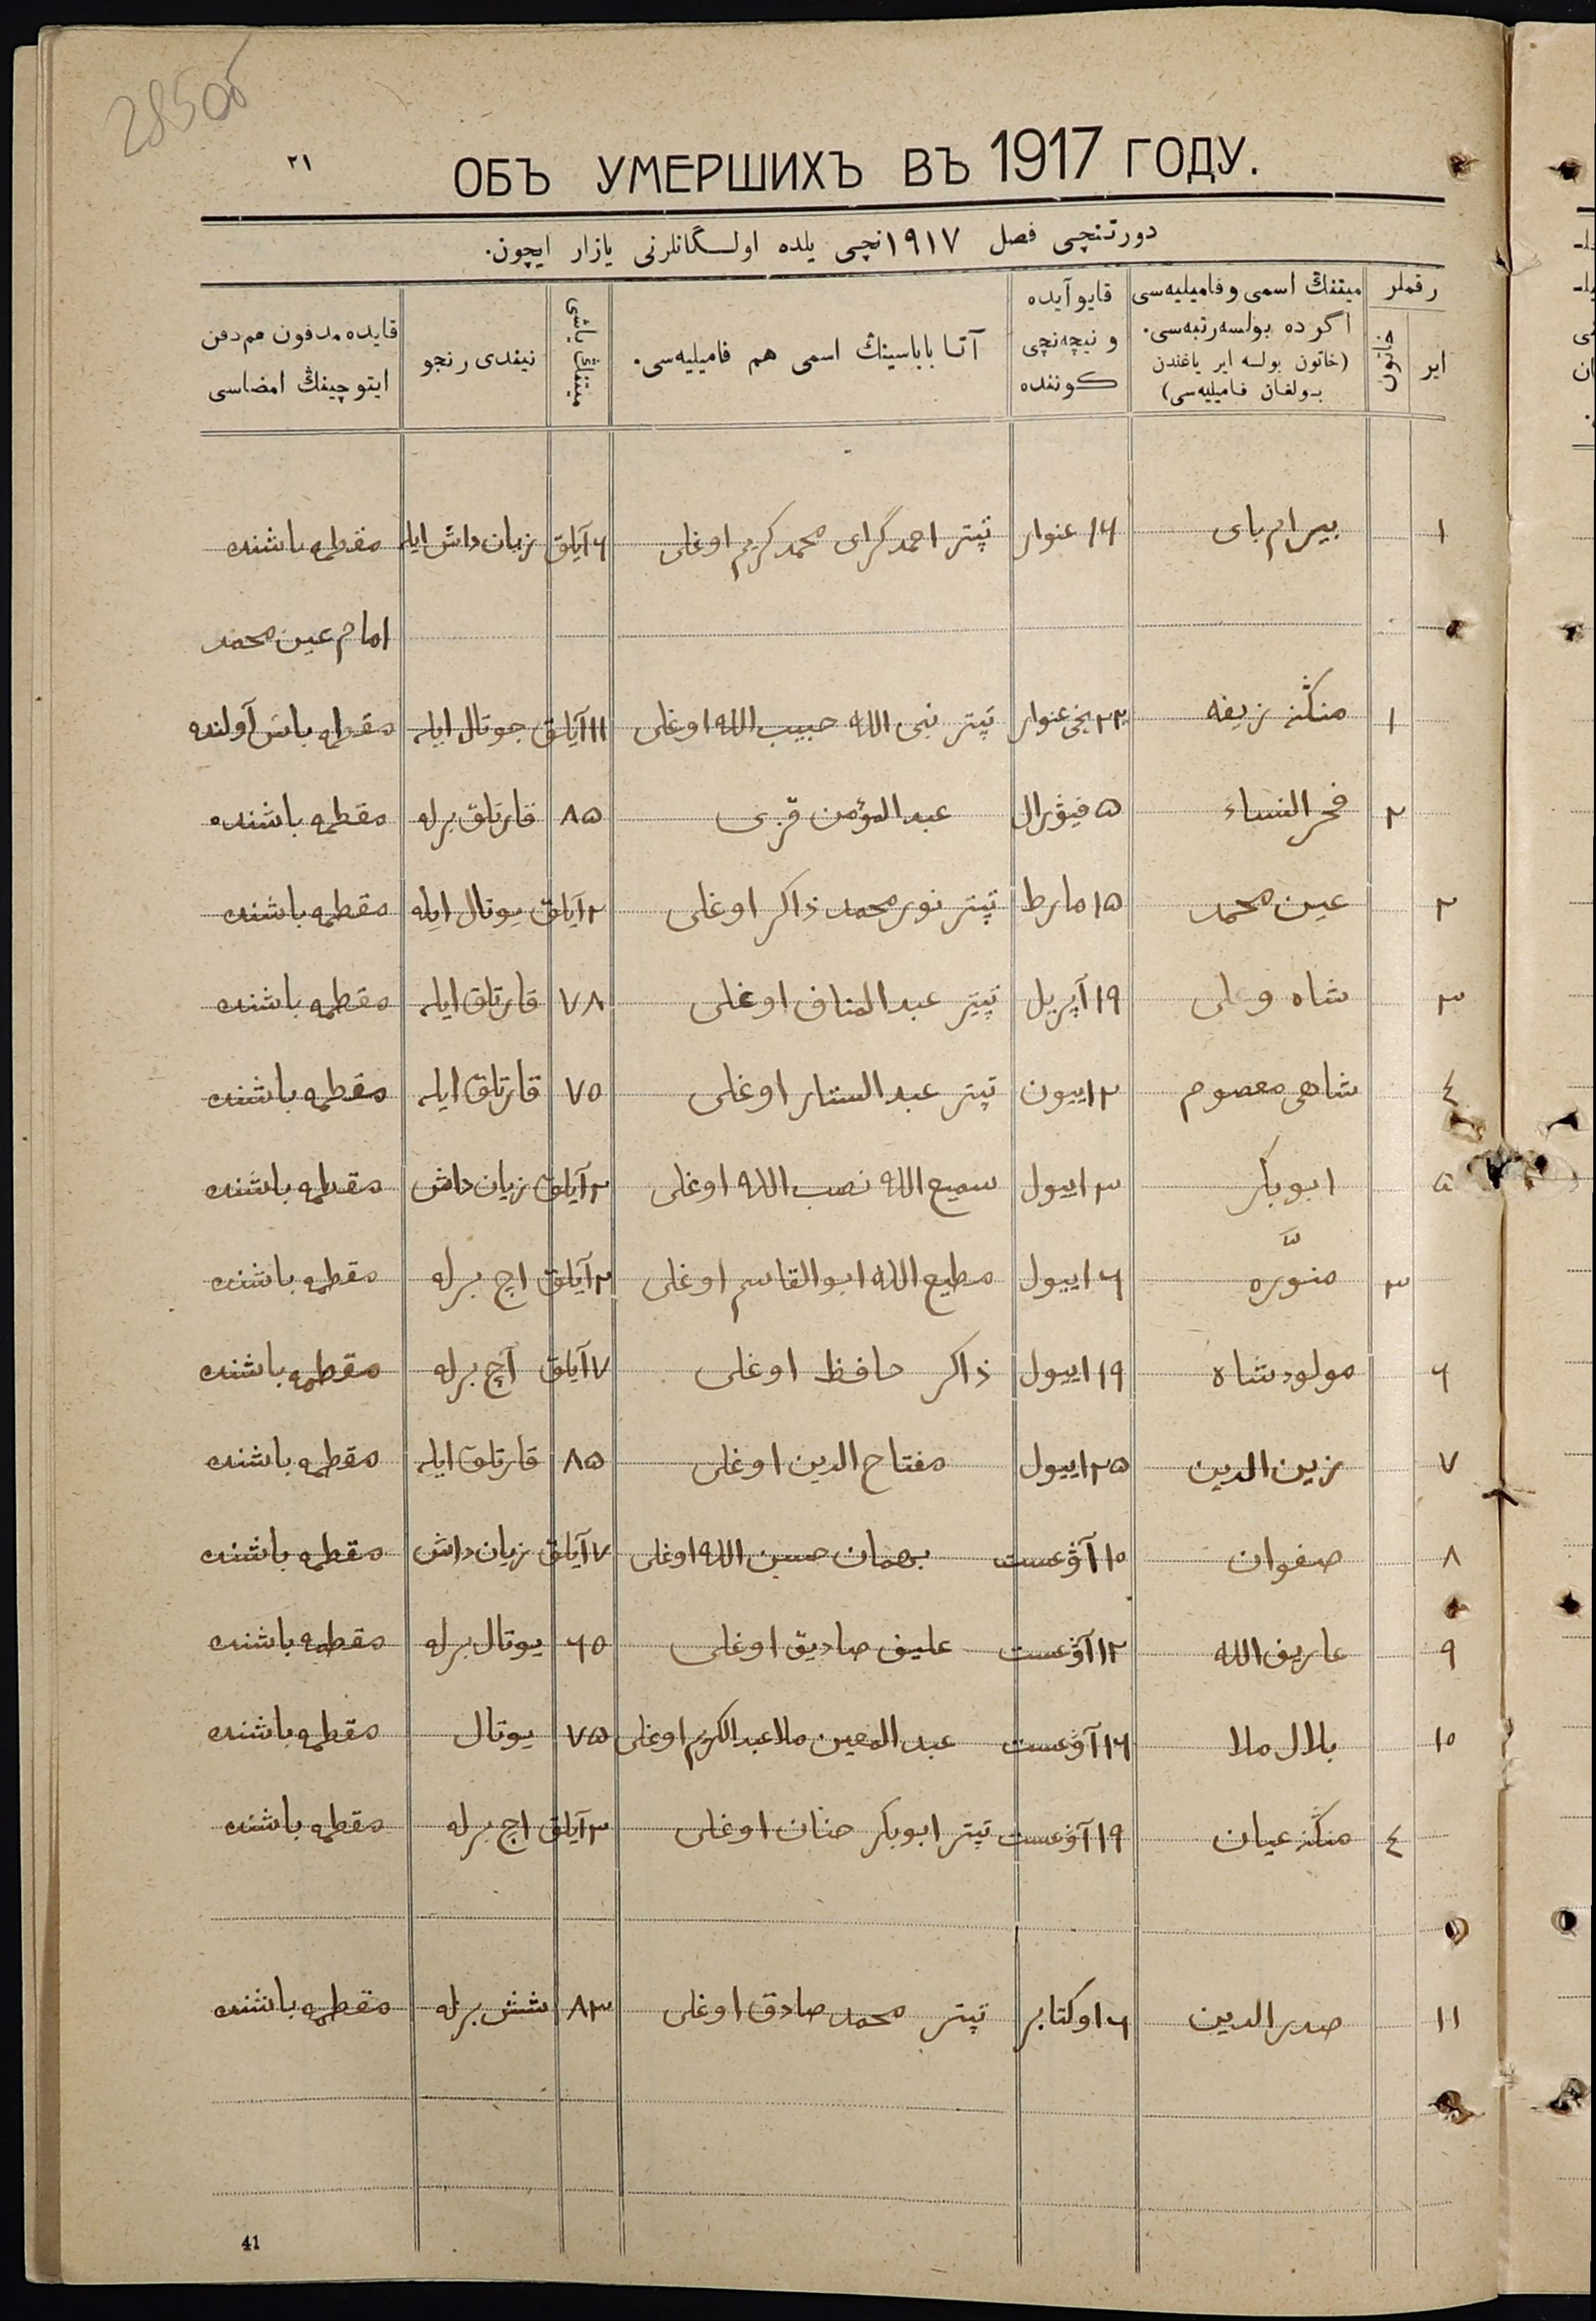 285об
٢١
ОБЪ УМЕРШИХЪ ВЪ 1917 ГОДУ.
دورتنچی فصل ١٩١٧ نچی یلده اولـگانلرنی یازار ایچون.
رقملر
ایر
خاتون
میتنڭ اسمی وفامیلیه‌سی اگر ده بولسه رتبه‌سی. (خاتون بولسه ایر یاغندن بولغان فامیلیه‌سی)
قایو آیده و نیچه‌نچی کوننده
آتا باباسینڭ اسمی هم فامیلیه‌سی.
میتنڭ یاشی
نیندی رنجو
قایده مدفون هم دفن ایتوچینڭ امضاسی
١ بیرام بای ١٦ عنوار تیپتر احمد گرای محمد کریم اوغلی ٦ آیلق زیان داش ایله مقطمه باشنده
امام عین محمد
١ منڭنه زیفه ٢٢ نچی عنوار تیپتر نبی الله حبیب الله اوغلی ١١ آیلق جوتال ایله مقطمه باش آولنده
٢ فخر النساء ٥ فیۋرال عبد المؤمن قزی ٨٥ قارتلق برله مقطمه باشنده
٢ عین محمد ١٥ مارط تیپتر نور محمد ذاکر اوغلی ٢ آیلق یوتال ایله مقطمه باشنده
٣ شاه ولی ١٩ آپریل تیپتر عبد المناف اوغلی ٧٨ قارتلق ایله مقطمه باشنده
٤ شاهی معصوم ١٢ اییون تیپتر عبد الستار اوغلی ٧٥ قارتلق ایله مقطمه باشنده
٥ ابو بکر ٣ اییول سمیع الله نصب الله اوغلی ٢ آیلق زیان داش مقطمه باشنده
٣ منوّره ٦ اییول مطیع الله ابو القاسم اوغلی ٢ آیلق اچ برله مقطمه باشنده
٦ مولود شاه ١٩ اییول ذاکر حافظ اوغلی ٧ آیلق آچ برله مقطمه باشنده
٧ زین الدین ٢٥ اییول مفتاح الدین اوغلی ٨٥ قارتلق ایله مقطمه باشنده
٨ صفوان ١٠ آۋغست برهمان حسین الله اوغلی ٧ آیلق زیان داش مقطمه باشنده
٩ عاریف الله ١٢ آۋغست علیف صادیق اوغلی ٦٥ یوتال برله مقطمه باشنده
١٠ بلال ملا ١٦ آۋغست عبد المعین ملا عبد الکریم اوغلی ٧٥ یوتال مقطمه باشنده
٤ منڭنه عیان ١٩ آۋغست تیپتر ابو بکر حنان اوغلی ٣ آیلق اچ برله مقطمه باشنده
١١ صدر الدین ٦ اوکتابر تیپتر محمد صادق اوغلی ٨٣ شش برله مقطمه باشنده
41